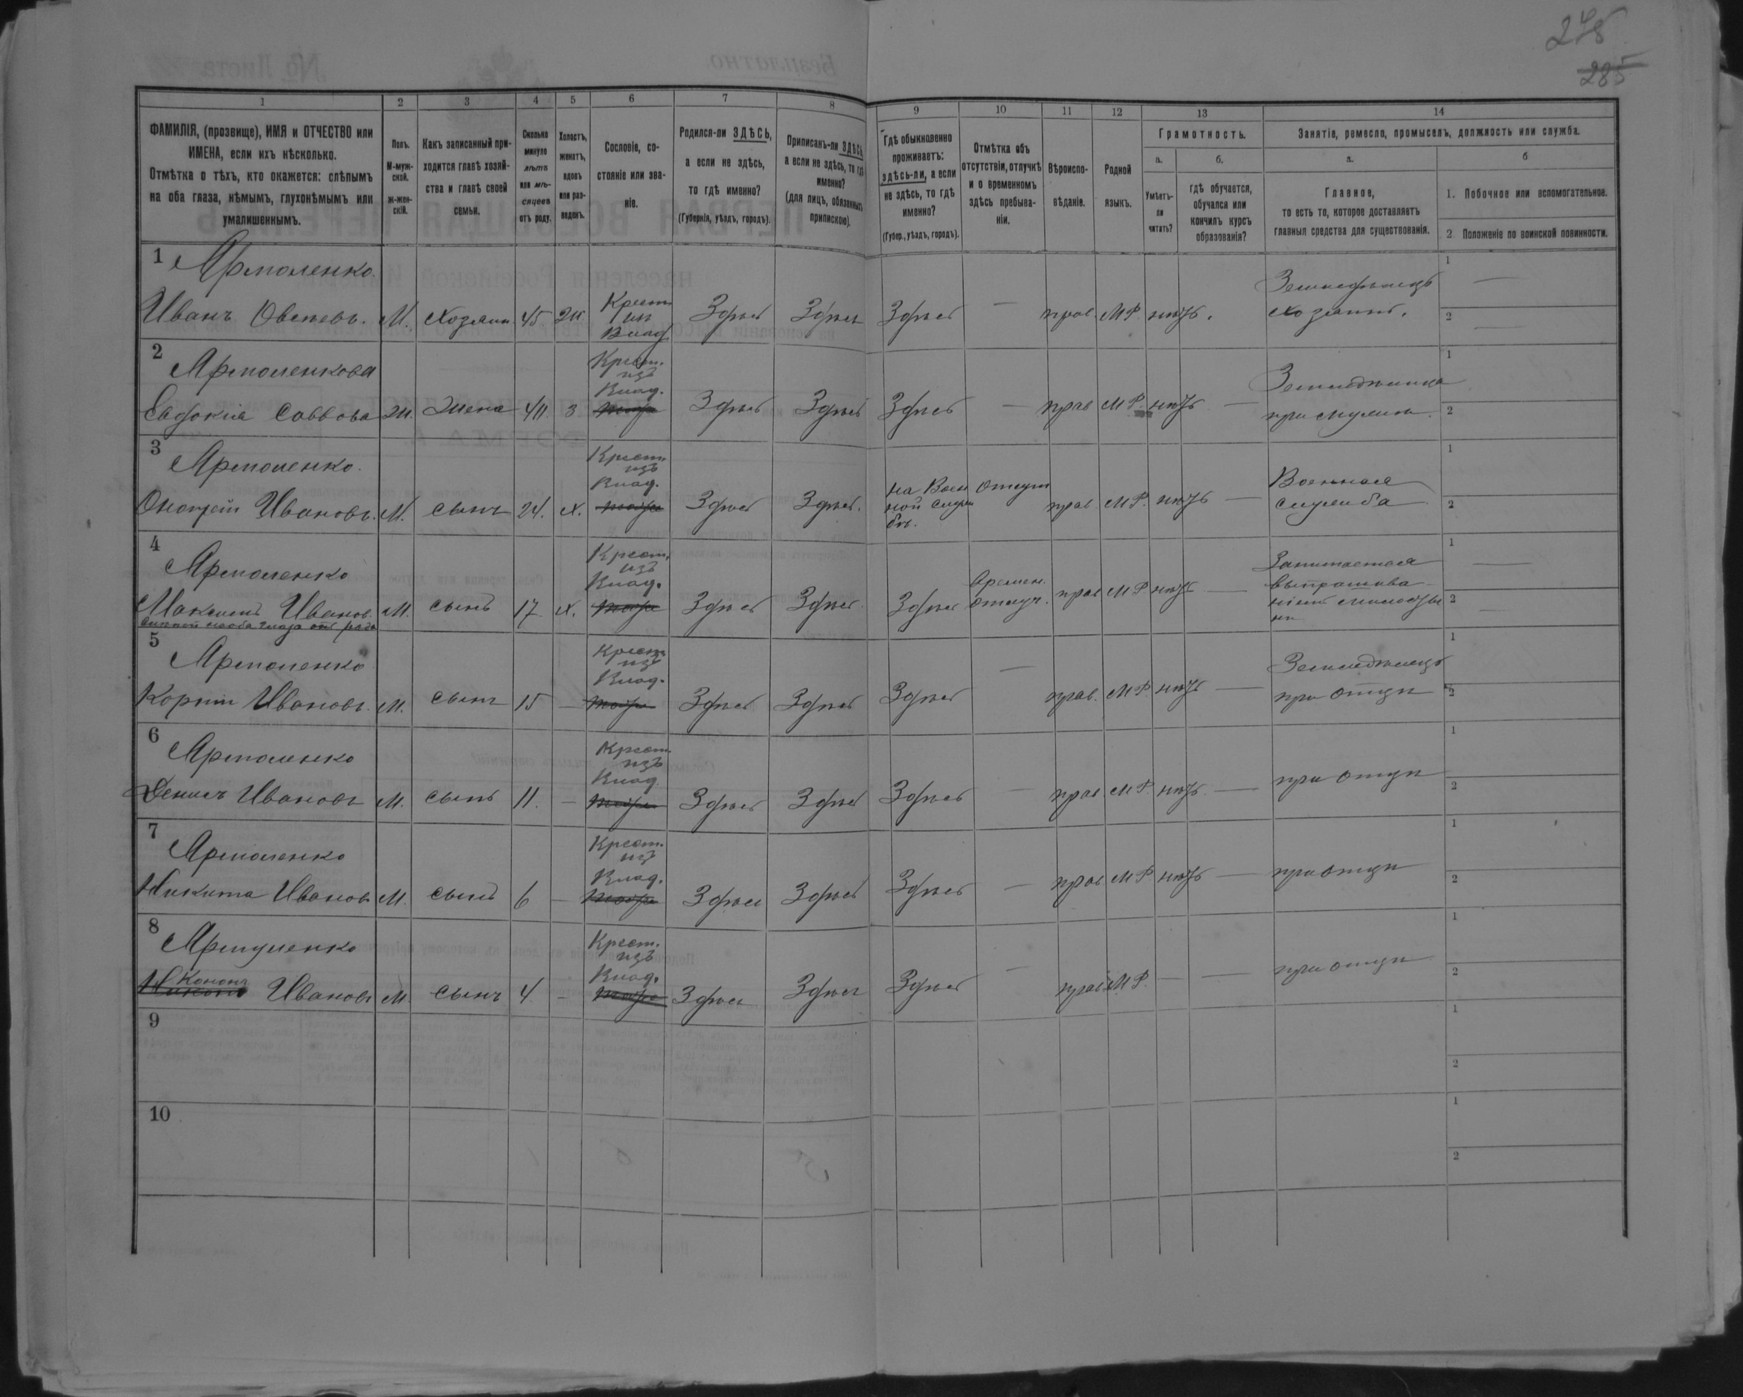 245
285
1 2 3 4 5 6 7 8 9 10 11 12 13 14
ФАМИЛІЯ, (прозвище), ИМЯ и ОТЧЕСТВО или
ИМЕНА, если ихъ нѣсколько.
Отмѣтка о тѣхъ, кто окажется: слѣпымъ
на оба глаза, нѣмымъ, глухонѣмымъ или
умалишеннымъ.
Полъ.
М-муж-
ской.
ж-жен-
скій.
Какъ записанный при-
ходится главѣ хозяй-
ства и главѣ своей
семьи.
Сколько
минуло
лѣтъ
или мѣ-
сяцевъ
отъ роду.
Холостъ,
женатъ,
вдовъ
или раз-
веденъ.
Сословіе, со-
стояніе или зва-
ніе.
Родился-ли ЗДѢСЬ,
а если не здѣсь,
то гдѣ именно?
(Губернія, уѣздъ, городъ).
Приписанъ-ли ЗДѢСЬ,
а если не здѣсь, то гдѣ
именно?
(для лицъ, обязанныхъ
припискою).
Гдѣ обыкновенно
проживаетъ:
здѣсь-ли, а если
не здѣсь, то гдѣ
именно?
(Губер., уѣздъ, городъ).
Отмѣтка объ
отсутствіи, отлучкѣ
и о временномъ
здѣсь пребыва-
ніи.
Вѣроиспо-
вѣданіе.
Родной
языкъ.
Грамотность.
а.
Умѣетъ-
ли
читать?
б.
гдѣ обучается,
обучался или
кончилъ курсъ
образованія?
Занятіе, ремесло, промыселъ, должность или служба.
а.
Главное,
то есть то, которое доставляетъ
главныя средства для существованія.
б
1. Побочное или вспомогательное.
2 Положеніе по воинской повинности.
1 Ярмоленко
Иванъ М. хозяинъ 45 Ж Крест. из Влад Здѣсь Здѣсь Здѣсь — прав. МР нѣтъ. Земледѣлецъ
хозяинъ. 1 — 2 —
2 Ярмоленкова
Евдокія Саввова Ж жена 40 З Крест. изъ Влад. Здѣсь Здѣсь Здѣсь — прав МР нѣтъ — Земледѣлица
при мужѣ 1 2
3 Ярмоленко
Онопрій Ивановъ. М. сынъ 24. Х. Крест. изъ Влад. Здѣсь Здѣсь. на Воен
ной служ
бѣ. отсут прав МР. нѣтъ — Военная
служба 1 2
4 Ярмоленко
Максимъ Иванов М. сынъ 17 Х. Крест. изъ Влад. Здѣсь Здѣсь Здѣсь Времен.
отлуч. прав МР нѣтъ — Занимается
выпрашива
ніемъ милосты
ни 1 — 2 —
5 Ярмоленко
Корній Ивановъ. М. сынъ 15 — Крест. изъ Влад. Здѣсь Здѣсь Здѣсь — прав. МР нѣтъ — Земледѣлецъ
при отцѣ 1 2
6 Ярмоленко
Денисъ Ивановъ М. сынъ 11. — Крест. изъ Влад Здѣсь Здѣсь Здѣсь — прав МР нѣтъ. — при отцѣ 1 2
7 Ярмоленко
Никита Ивановъ М. сынъ 6 — Крест. изъ Влад. Здѣсь Здѣсь Здѣсь — прав МР нѣтъ — при отцѣ 1 2
8 Ярмуленко
Кононъ Ивановъ М сынъ 4. — Крест. изъ Влад. Здѣсь Здѣсь Здѣсь — прав МР. — — при отцѣ 1 2
9 1 2
10 1 2